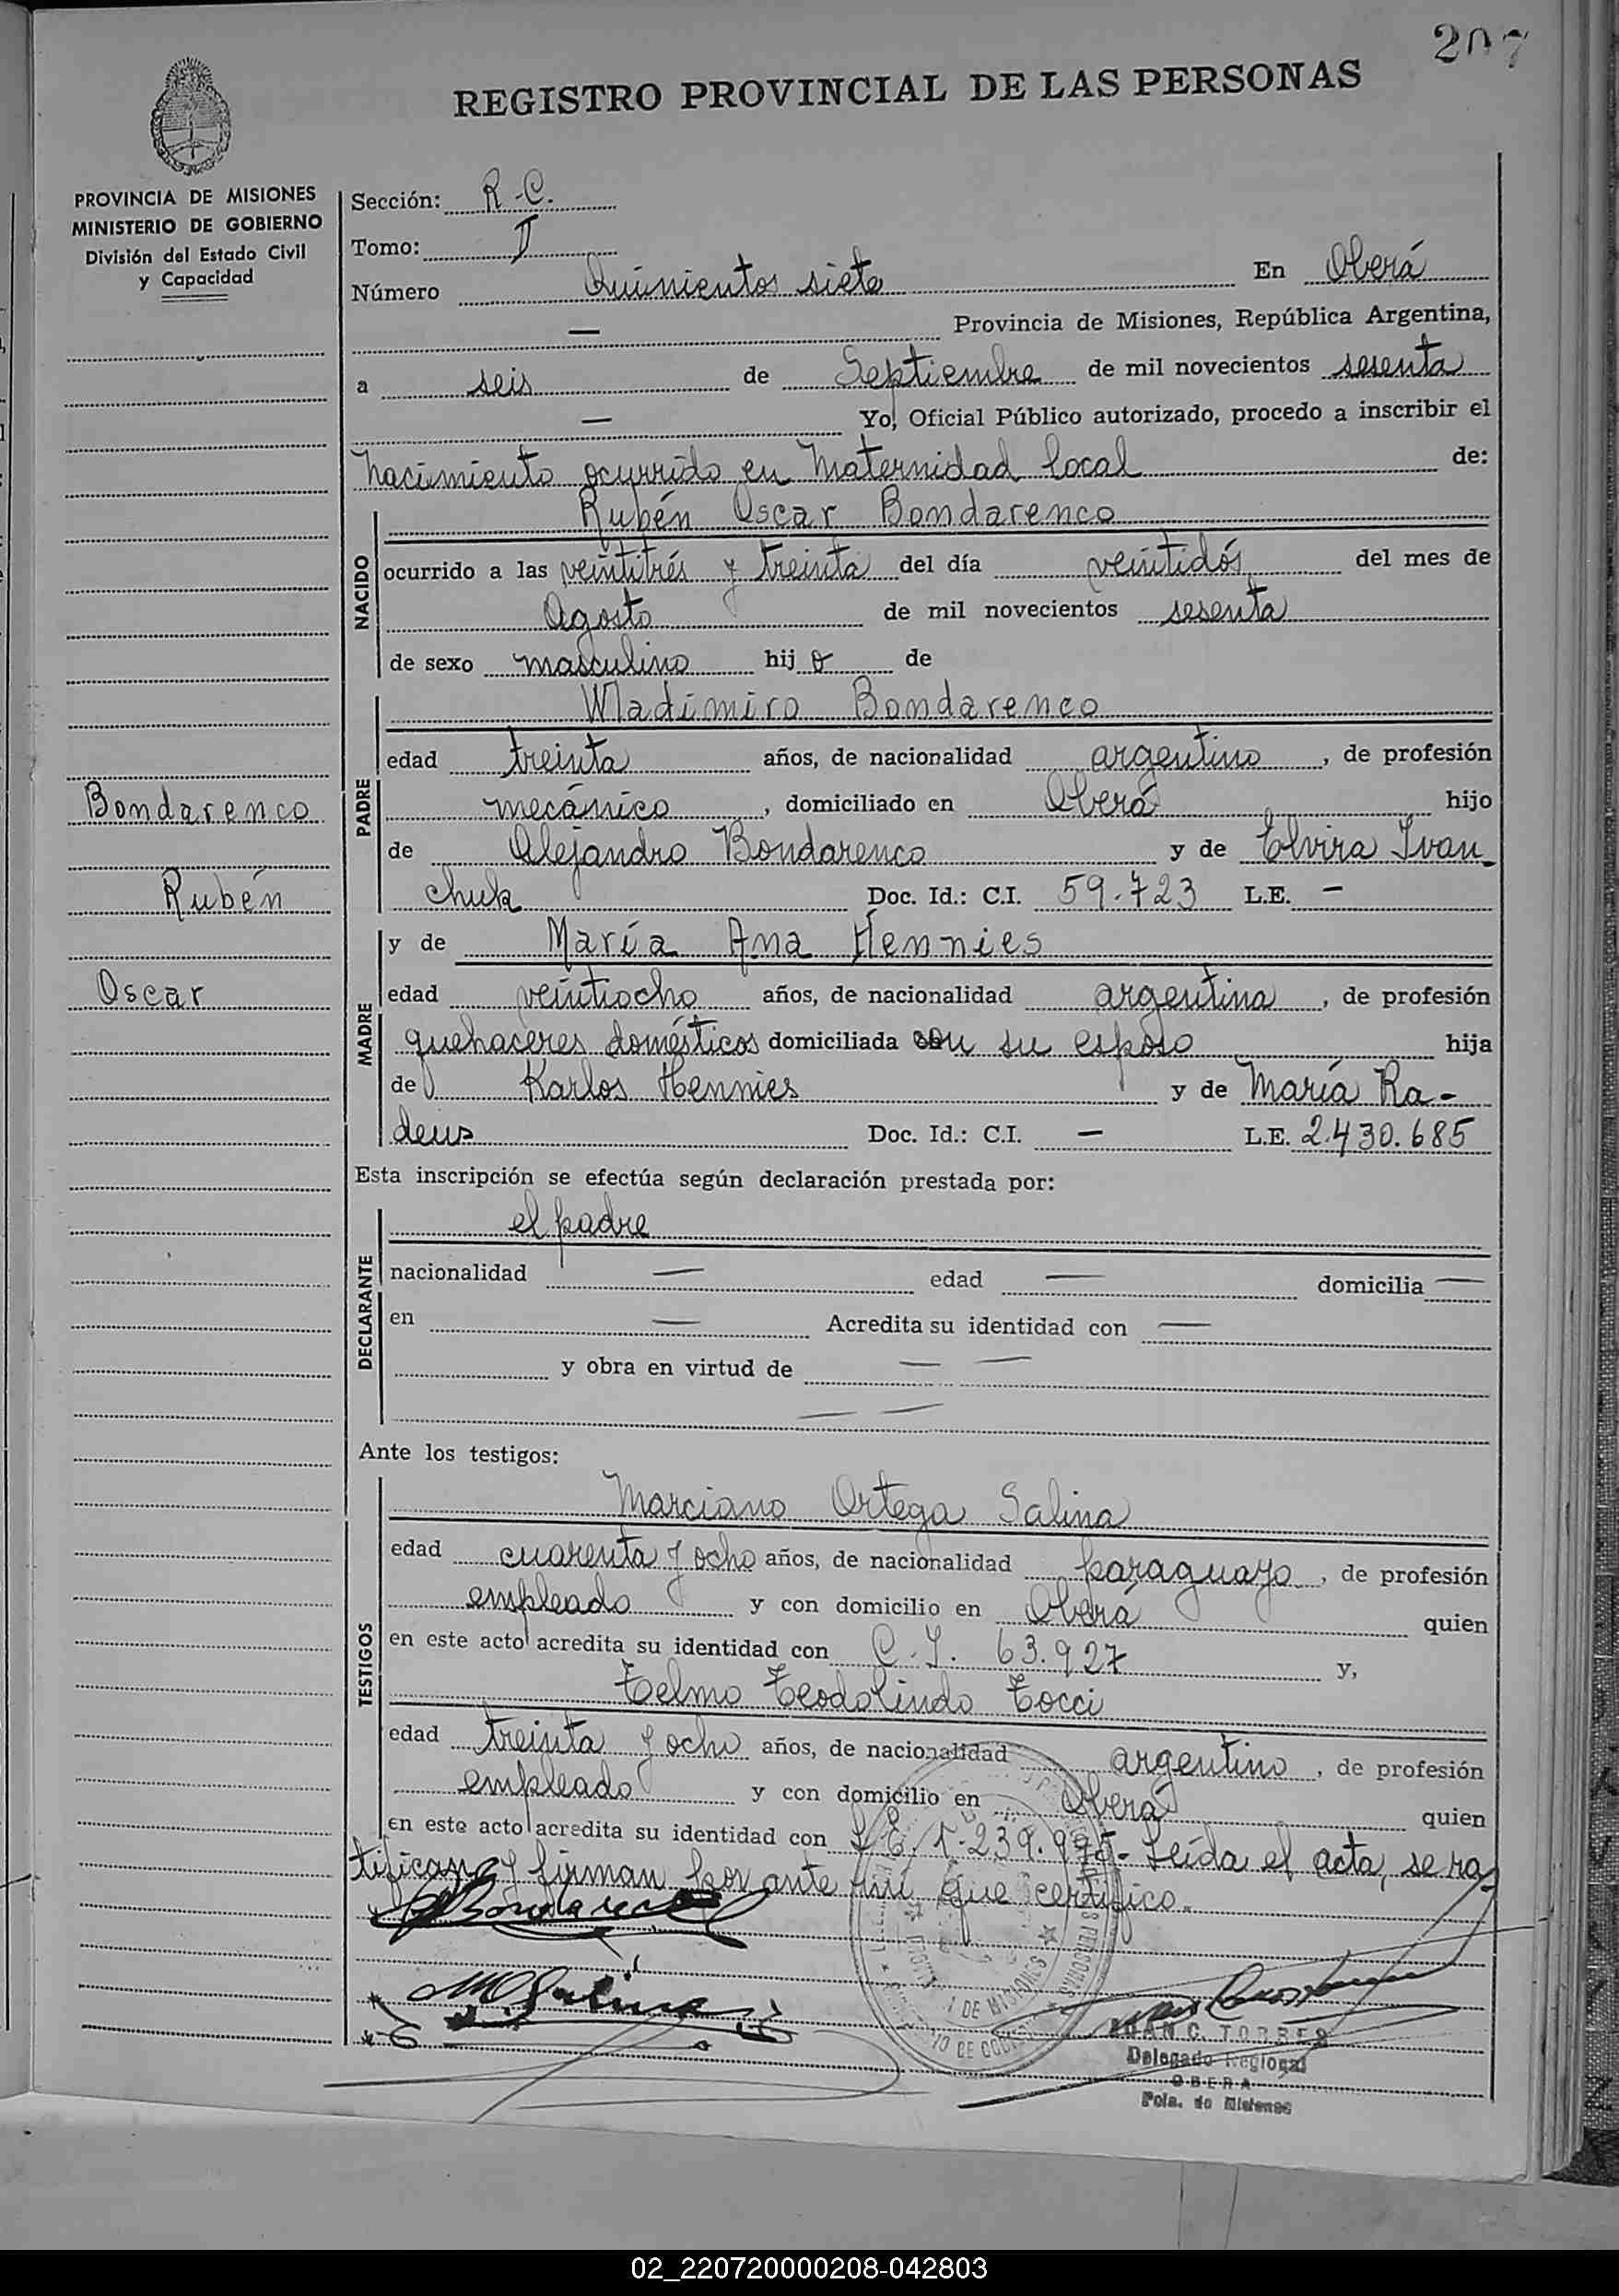 207
REGISTRO PROVINCIAL DE LAS PERSONAS
PROVINCIA DE MISIONES
MINISTERIO DE GOBIERNO
División del Estado Civil
y Capacidad
Sección: R-C.
Tomo: II
Número Quinientos siete En Oberá
— Provincia de Misiones, República Argentina,
a seis de Septiembre de mil novecientos sesenta
— Yo, Oficial Público autorizado, procedo a inscribir el
nacimiento ocurrido en Maternidad local de:
NACIDO
Rubén Oscar Bondarenco
ocurrido a las veintitrés y treinta del día veintidós del mes de
Agosto de mil novecientos sesenta
de sexo masculino hijo de
PADRE
Wladimiro Bondarenco
edad treinta años, de nacionalidad argentino, de profesión
mecánico, domiciliado en Oberá hijo
de Alejandro Bondarenco y de Elvira Ivan
chuk Doc. Id.: C.I. 59.723 L.E. —
Bondarenco
Rubén
Oscar
MADRE
y de María Ana Hennies
edad veintiocho años, de nacionalidad argentina, de profesión
quehaceres domésticos domiciliada con su esposo hija
de Karlos Hennies y de María Ra-
deus Doc. Id.: C.I. — L.E. 2.430.685
Esta inscripción se efectúa según declaración prestada por:
DECLARANTE
el padre
nacionalidad — edad — domicilia —
en — Acredita su identidad con —
y obra en virtud de — —
— —
Ante los testigos:
TESTIGOS
Marciano Ortega Salina
edad cuarenta y ocho años, de nacionalidad paraguayo, de profesión
empleado y con domicilio en Oberá quien
en este acto acredita su identidad con C.I. 63.927 y,
Telmo Teodolindo Tocci
edad treinta y ocho años, de nacionalidad argentino, de profesión
empleado y con domicilio en Oberá quien
en este acto acredita su identidad con L.E. 1.239.975.- Leída el acta, se ra
tifican y firman por ante mí que certifico.
Bondarenco
MO Salina
JUAN C. TORRES
Delegado Regional
OBERA
Pcia. de Misiones
02_220720000208-042803